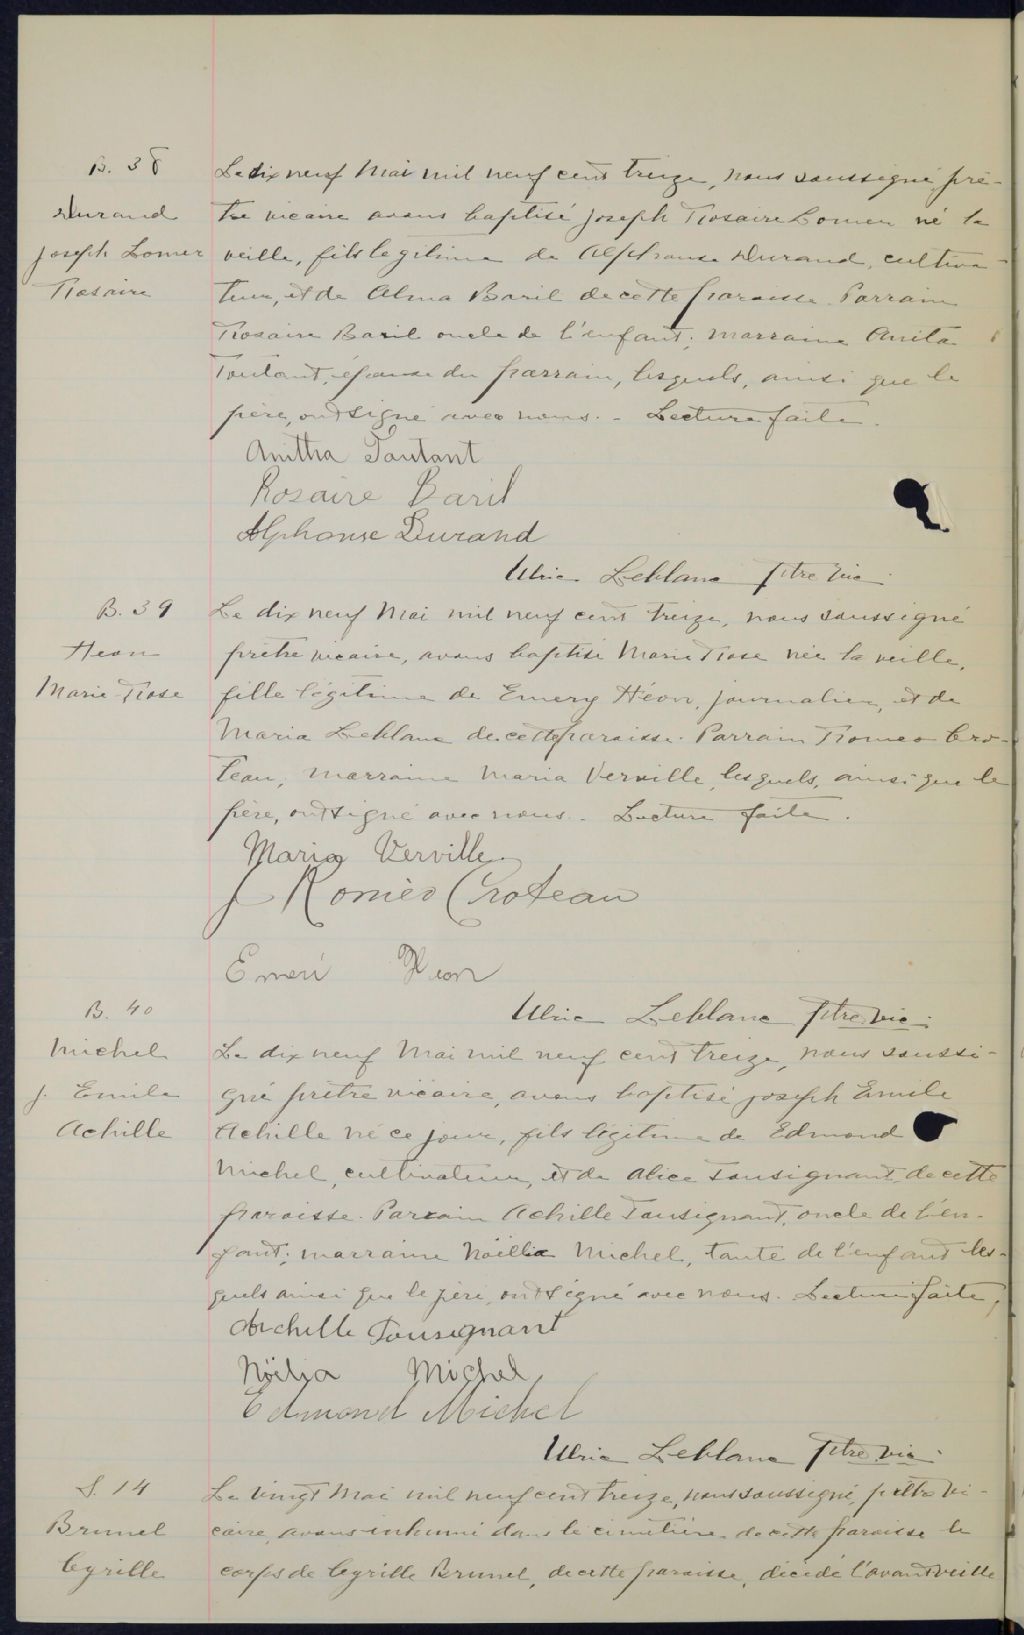 B. 38
Durand
Joseph Lomer
Rosaire
Le dix neuf Mai mil neuf cent treize, nous soussigné prê-
tre vicaire avons baptisé Joseph Rosaire Lomer né la
veille, fils légitime de Alphonse Durand, cultiva-
teur, et de Alma Baril de cette paroisse. Parrain
Rosaire Baril oncle de l'enfant; marraine Anita
Toutant, épouse du parrain, lesquels, ainsi que le
père, ont signé avec nous. - Lecture faite.
Anitha Toutant
Rosaire Baril
Alphonse Durand
Ulric Leblanc ptre vic.
B. 39
Heon
Marie-Rose
Le dix neuf Mai mil neuf cent treize, nous soussigné
prêtre vicaire, avons baptisé Marie Rose née la veille,
fille légitime de Emery Héon, journalier, et de
Maria Leblanc de cette paroisse. Parrain Romeo Cro-
teau, marraine Maria Verville, lesquels, ainsi que le
père, ont signé avec nous. - Lecture faite.
Maria Verville.
J Roméo Croteau
Emeri Heon
Ulric Leblanc ptre vic.
B. 40
Michel
J. Emile
Achille
Le dix neuf Mai mil neuf cent treize, nous soussi-
gné prêtre vicaire, avons baptisé Joseph Emile
Achille né ce jour, fils légitime de Edmond
Michel, cultivateur, et de Alice Tousignant de cette
paroisse. Parrain Achille Tousignant, oncle de l'en-
fant; marraine Noëllia Michel, tante de l'enfant les-
quels ainsi que le père, ont signé avec nous. Lecture faite,
Archille Tousignant
Noëlia Michel
Edmond Michel
Ulric Leblanc ptre vic.
S. 14
Brunel
Cyrille
Le vingt Mai mil neuf cent treize, nous soussigné, prêtre vi-
caire, avons inhumé dans le cimetière de cette paroisse le
corps de Cyrille Brunel, de cette paroisse, décédé l'avant veille